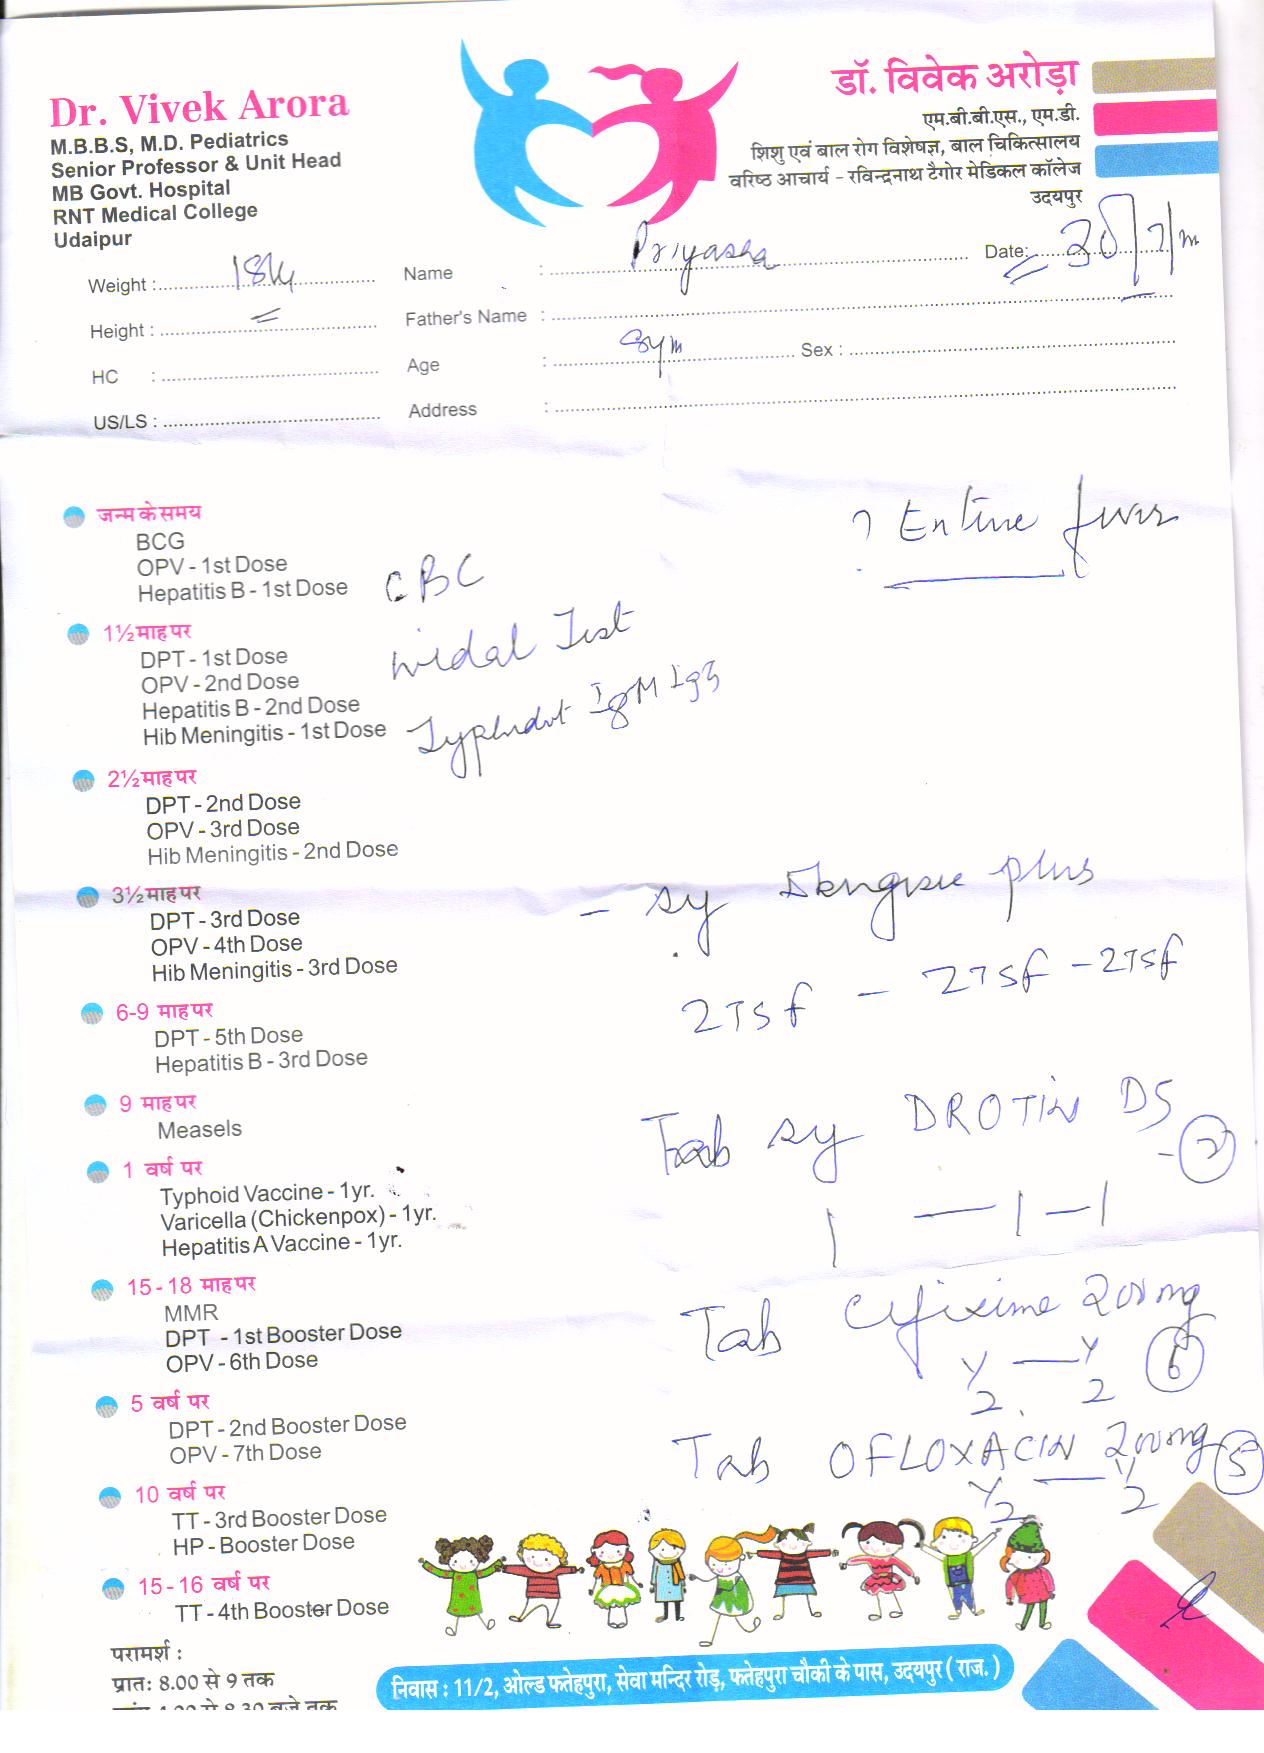 Dr. Vivek Arora
M.B.B.S, M.D. Pediatrics
Senior Professor & Unit Head
MB Govt. Hospital
RNT Medical College
Udaipur
डॉ. विवेक अरोड़ा
एम.बी.बी.एस., एम.डी.
शिशु एवं बाल रोग विशेषज्ञ, बाल चिकित्सालय
वरिष्ठ आचार्य - रविन्द्रनाथ टैगोर मेडिकल कॉलेज
उदयपुर
Weight : 18
Name : Priyasha
Date:
Height :
Father's Name :
HC :
Age :
Sex :
US/LS :
Address :
जन्म के समय
BCG
OPV - 1st Dose
Hepatitis B - 1st Dose
CBC
1½ माह पर
DPT - 1st Dose
OPV - 2nd Dose
Hepatitis B - 2nd Dose
Hib Meningitis - 1st Dose
widal Test
Typhidot IgM IgG
2½ माह पर
DPT - 2nd Dose
OPV - 3rd Dose
Hib Meningitis - 2nd Dose
3½ माह पर
DPT - 3rd Dose
OPV - 4th Dose
Hib Meningitis - 3rd Dose
6-9 माह पर
DPT - 5th Dose
Hepatitis B - 3rd Dose
9 माह पर
Measels
1 वर्ष पर
Typhoid Vaccine - 1yr.
Varicella (Chickenpox) - 1yr.
Hepatitis A Vaccine - 1yr.
15-18 माह पर
MMR
DPT - 1st Booster Dose
OPV - 6th Dose
5 वर्ष पर
DPT - 2nd Booster Dose
OPV - 7th Dose
10 वर्ष पर
TT - 3rd Booster Dose
HP - Booster Dose
15-16 वर्ष पर
TT - 4th Booster Dose
परामर्श :
प्रात: 8.00 से 9 तक
? fever
- sy plus
2TSF - 2TSF - 2TSF
Tab sy DROTIN DS
1 — 1 — 1
Tab Cefixime 200mg
½ — ½ 6
Tab OFLOXACIN 200mg 5
½ — ½
निवास : 11/2, ओल्ड फतेहपुरा, सेवा मन्दिर रोड़, फतेहपुरा चौकी के पास, उदयपुर ( राज. )